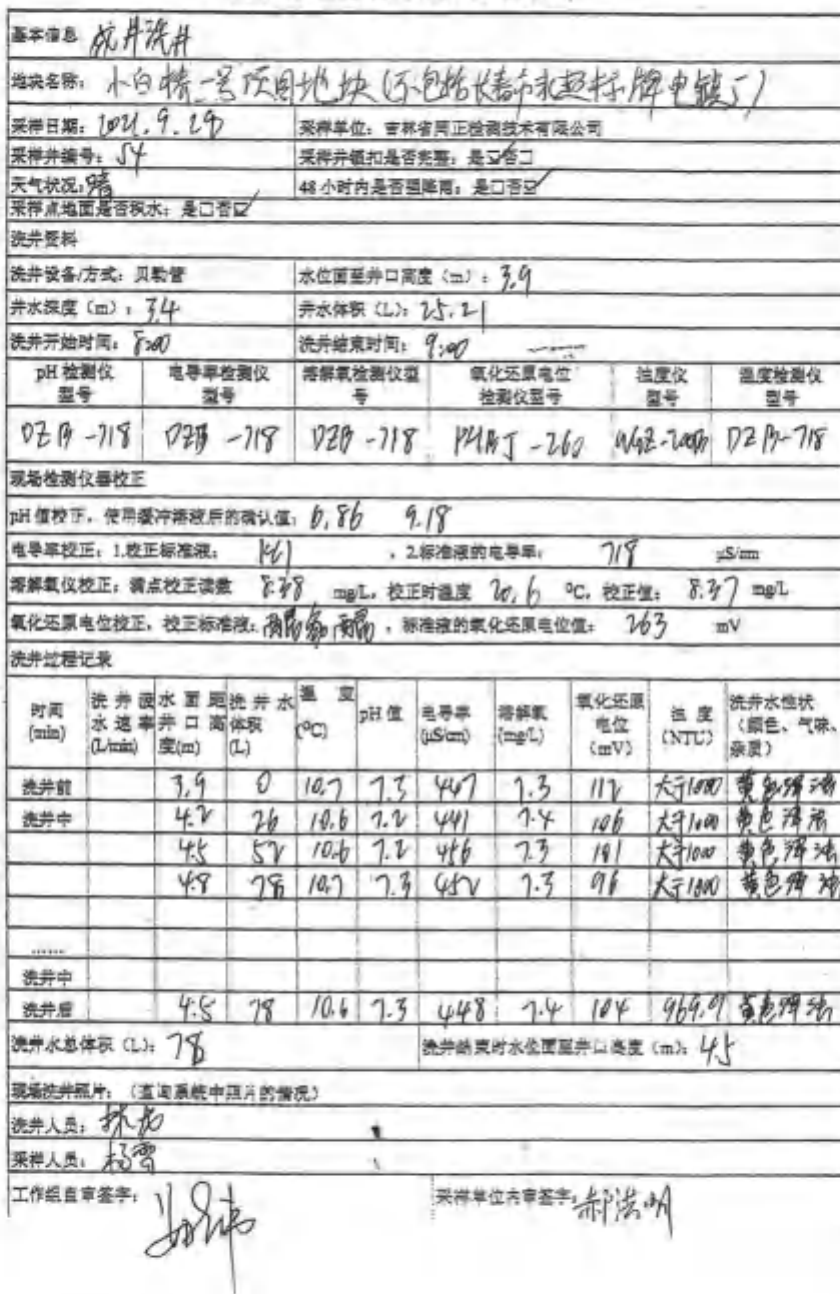 基本信息 成井洗井
地块名称： 小白楼一号项目地块(不包括长春市永超标牌电镀厂)
采样日期：2021.9.29 采样单位：吉林省同正检测技术有限公司
采样井编号：S4 采样井锁扣是否完整：是☑否□
天气状况：晴 48小时内是否强降雨：是□否☑
采样点地面是否积水：是□否☑
洗井资料
洗井设备/方式：贝勒管 水位面至井口高度（m）：3.9
井水深度（m）：3.4 井水体积（L）：25.21
洗井开始时间：8:00 洗井结束时间：9:00
pH检测仪型号 电导率检测仪型号 溶解氧检测仪型号 氧化还原电位检测仪型号 浊度仪型号 温度检测仪型号
DZB-718 DZB-718 DZB-718 PHBJ-260 WGZ-200B DZB-718
现场检测仪器校正
pH值校正，使用缓冲溶液后的确认值：6.86 9.18
电导率校正：1.校正标准液： ，2.标准液的电导率： 718 μS/cm
溶解氧仪校正：满点校正读数 8.38 mg/L，校正时温度 20.6 ℃，校正值： 8.37 mg/L
氧化还原电位校正，校正标准液： ，标准液的氧化还原电位值： 263 mV
洗井过程记录
时间(min) 洗井汲水速率(L/min) 水面距井口高度(m) 洗井水体积(L) 温度(℃) pH值 电导率(μS/cm) 溶解氧(mg/L) 氧化还原电位(mV) 浊度(NTU) 洗井水性状（颜色、气味、杂质）
洗井前 3.9 0 10.7 7.3 447 7.3 112 大于1000 黄色浑浊
洗井中 4.2 26 10.6 7.2 441 7.4 106 大于1000 黄色浑浊
4.5 52 10.6 7.2 456 7.3 101 大于1000 黄色浑浊
4.8 78 10.7 7.3 452 7.3 96 大于1000 黄色浑浊
……
洗井中
洗井后 4.5 78 10.6 7.3 448 7.4 104 969.9 黄色浑浊
洗井水总体积（L）：78 洗井结束时水位面至井口高度（m）：4.5
现场洗井照片：（查询系统中照片的情况）
洗井人员：
采样人员：杨雪
工作组自审签字： 采样单位内审签字：郝浩明